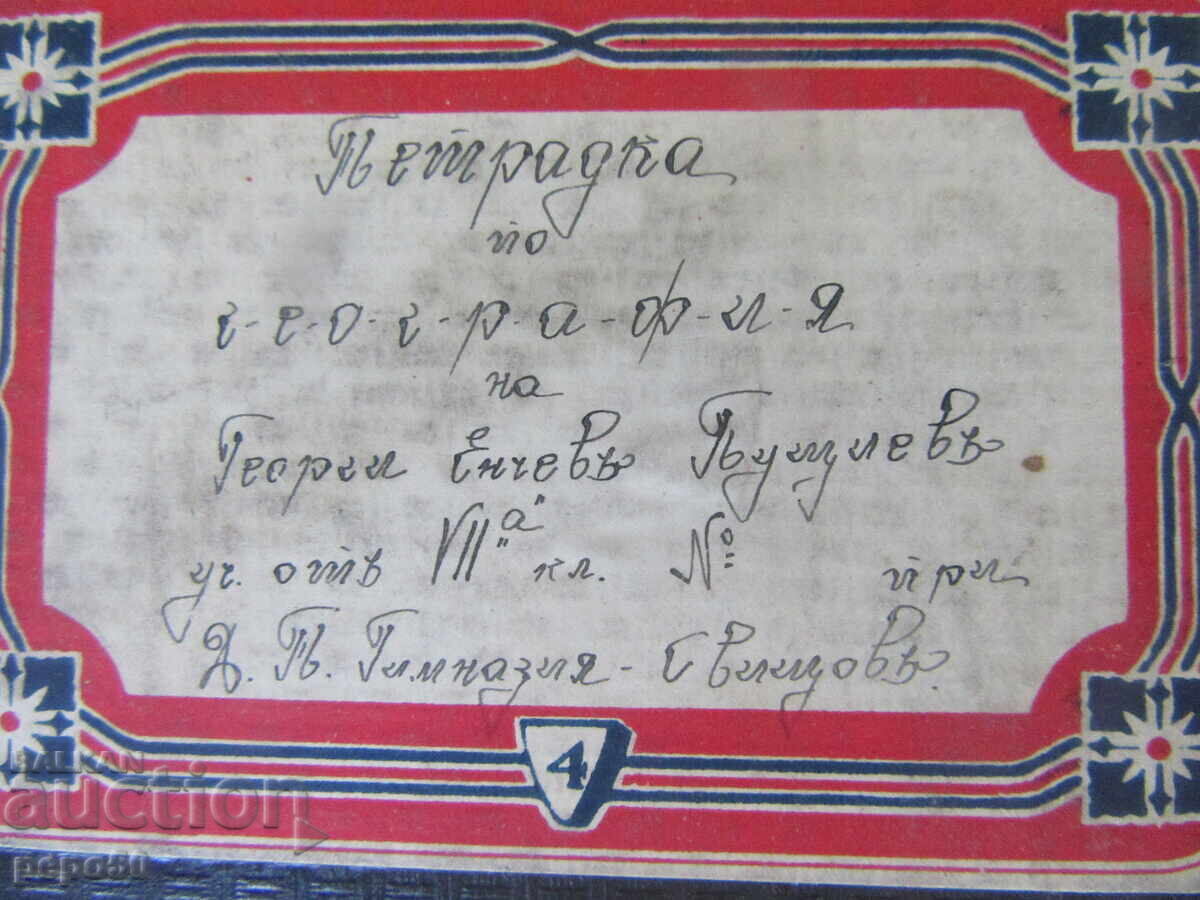 Тетрадка
по
г-е-о-г-р-а-ф-и-я
на
Георги Енчевъ
уч. отъ VII "а" кл. № при
Д. П. Гимназия - Свищовъ.
4
BALKAN
auction
pepo51